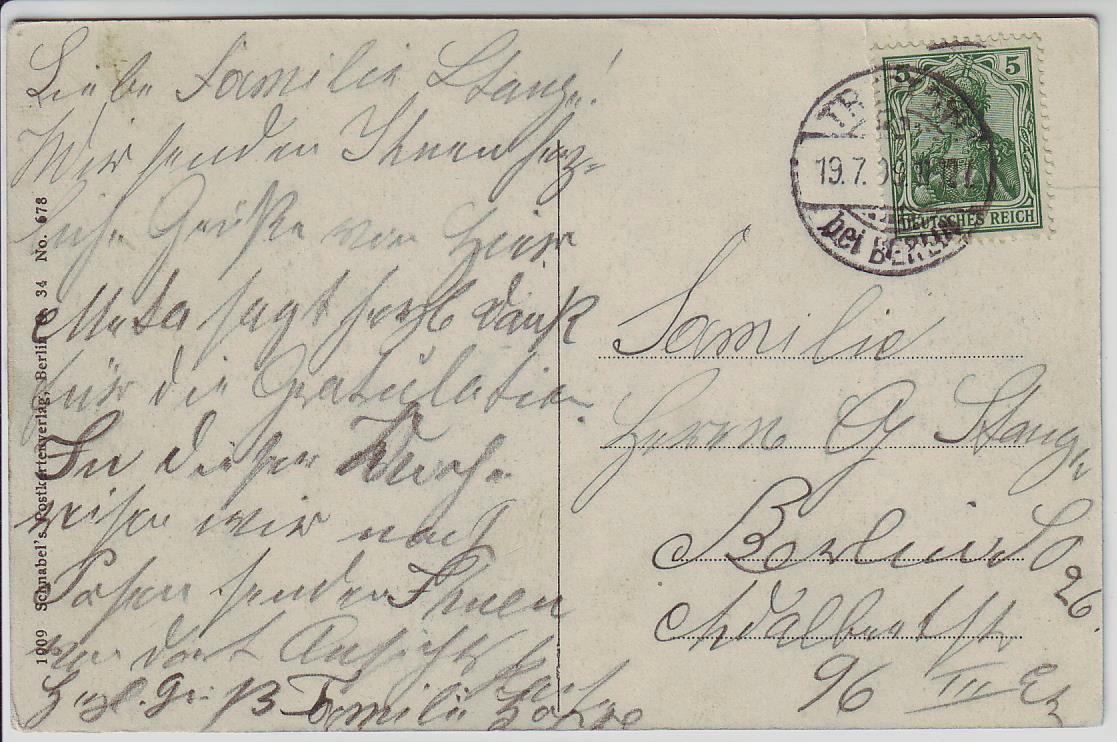 Liebe Familie Stange!
Wir senden Ihnen herz-
liche Grüße von hier
Meta sagt herzl Dank
für die Gratulation.
In dieser Woche
reisen wir nach
Posen senden Ihnen
von dort Ansichtskarte
Herzl. Gruß Familie
1909 Schnabel's Postkartenverlag, Berlin 34 No. 678
5 5
DEUTSCHES REICH
19.7.09
bei BERLIN
Familie
Herrn G Stange
Berlin SO
26.
Adalbertstr
96 III